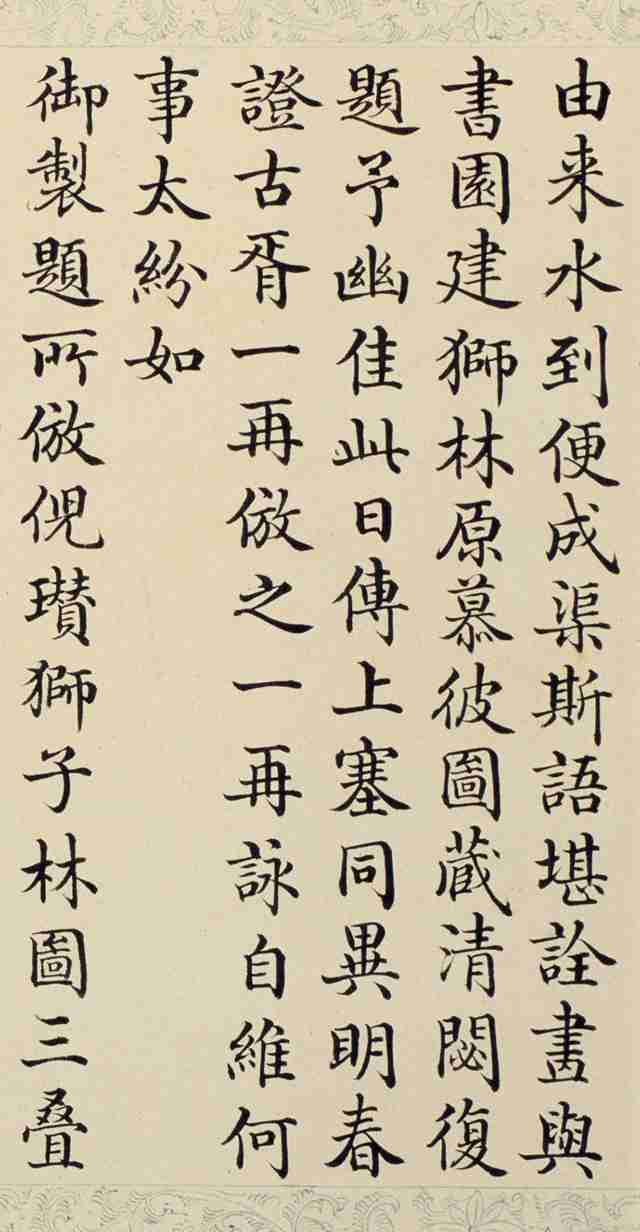 由来水到便成渠斯語堪詮畫與
書園建獅林原慕彼圖藏清閟復
題予幽佳此日傳上塞同異明春
證古胥一再倣之一再詠自維何
事太紛如
御製題所倣倪瓚獅子林圖三疊